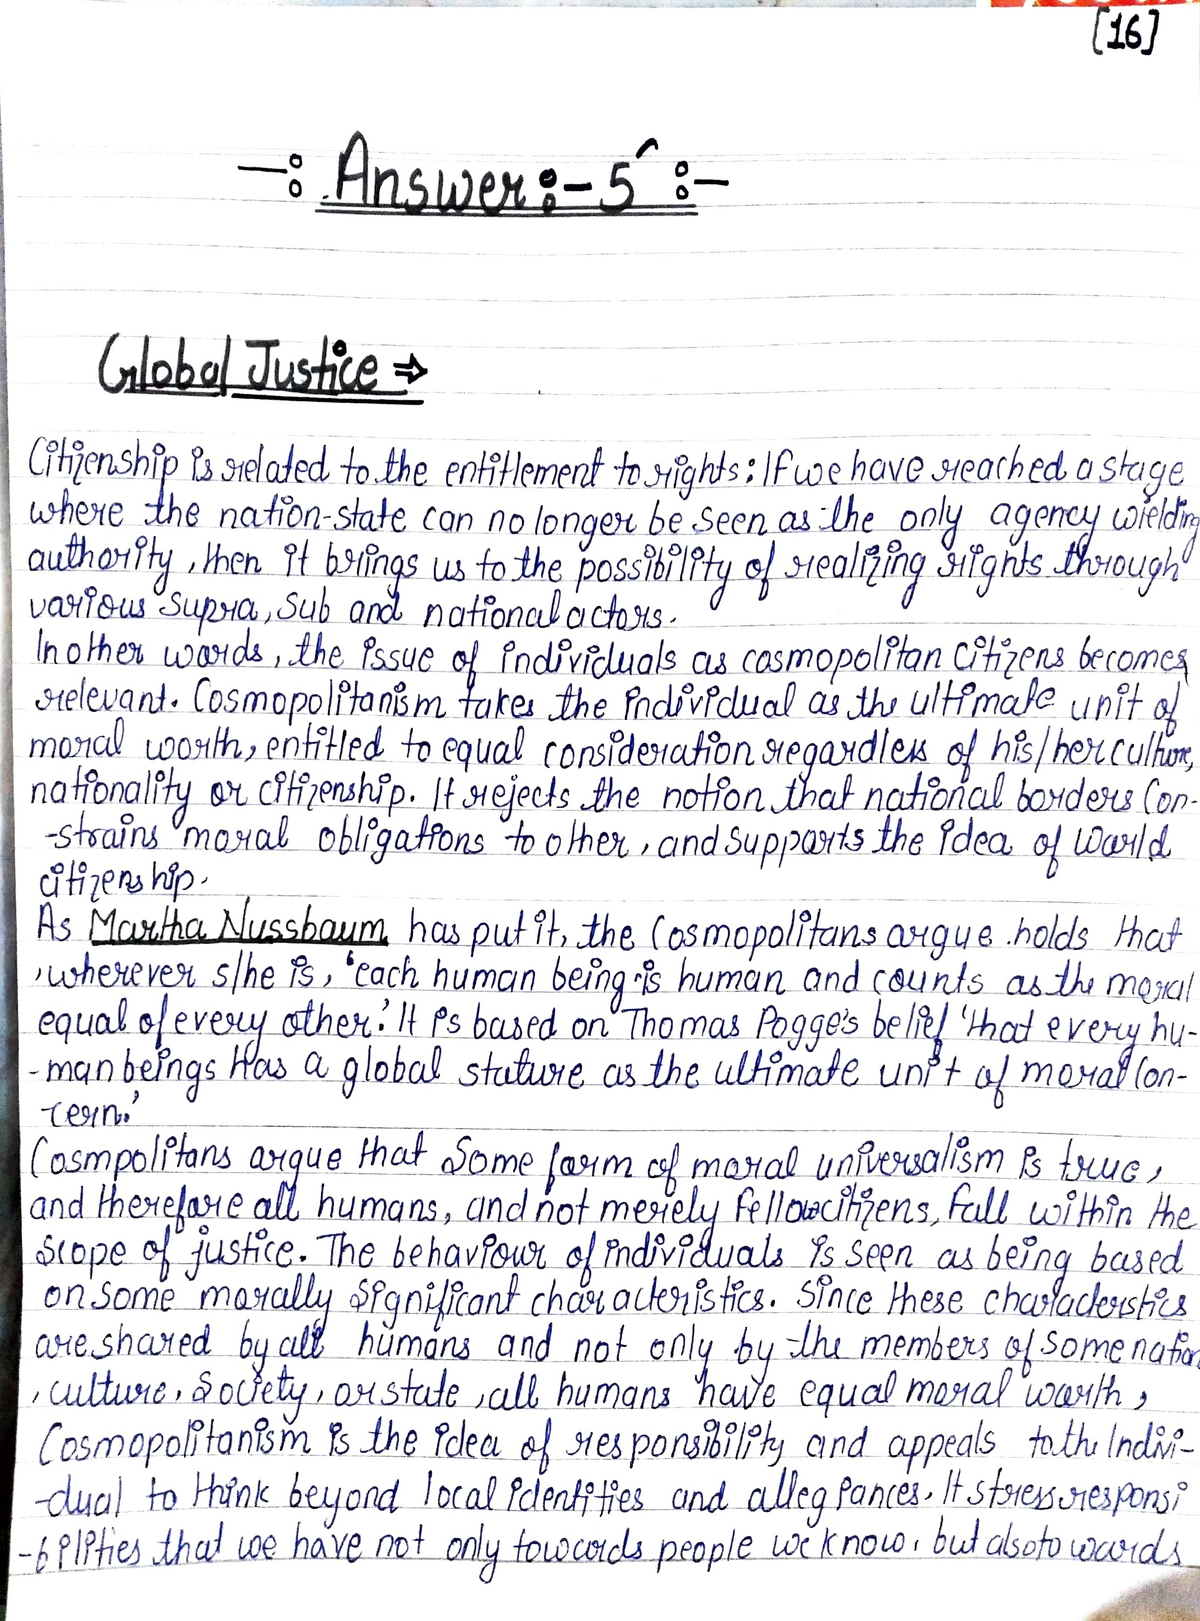 [16]
-: Answer:-5 :-
Global Justice ⇒
Citizenship is related to the entitlement to rights: If we have reached a stage
where the nation-state can no longer be seen as the only agency wielding
authority, then it brings us to the possibility of realizing rights through
various supra, sub and national actors.
In other words, the issue of individuals as cosmopolitan citizens becomes
relevant. Cosmopolitanism takes the individual as the ultimate unit of
moral worth, entitled to equal consideration regardless of his/her culture,
nationality or citizenship. It rejects the notion that national borders Con-
-strains moral obligations to other, and supports the idea of world
citizenship.
As Martha Nussbaum has put it, the Cosmopolitans argue holds that
, wherever s/he is, 'each human being is human and counts as the moral
equal of every other.' It is based on Thomas Pogge's belief 'that every hu-
-man beings has a global stature as the ultimate unit of moral Con-
-cern.'
Cosmpolitans argue that Some form of moral universalism is true,
and therefore all humans, and not merely fellowcitizens, fall within the
scope of justice. The behaviour of individuals is seen as being based
on some morally significant characteristics. Since these characterstics
are shared by all humans and not only by the members of some nation
, culture, society, or state, all humans have equal moral worth,
Cosmopolitanism is the idea of responsibility and appeals to the Indivi-
-dual to think beyond local identities and allegiances. It stress responsi
-bilities that we have not only towards people we know, but also towards